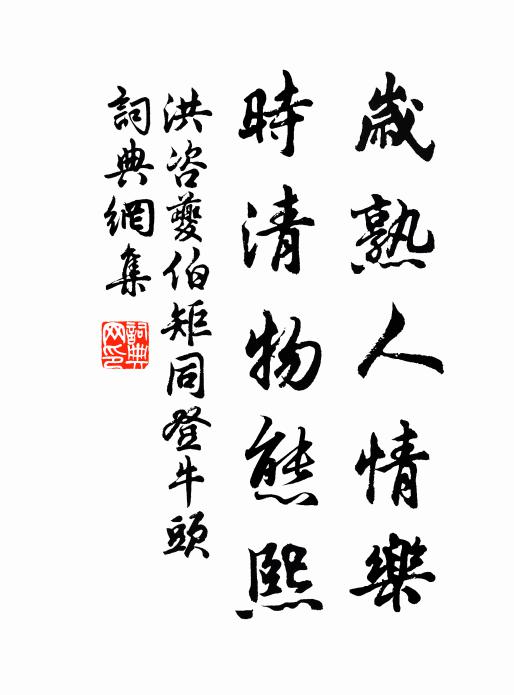 歲熟人情樂
時清物態熙
洪咨夔伯矩同登牛頭
詞典網集
詞典网印